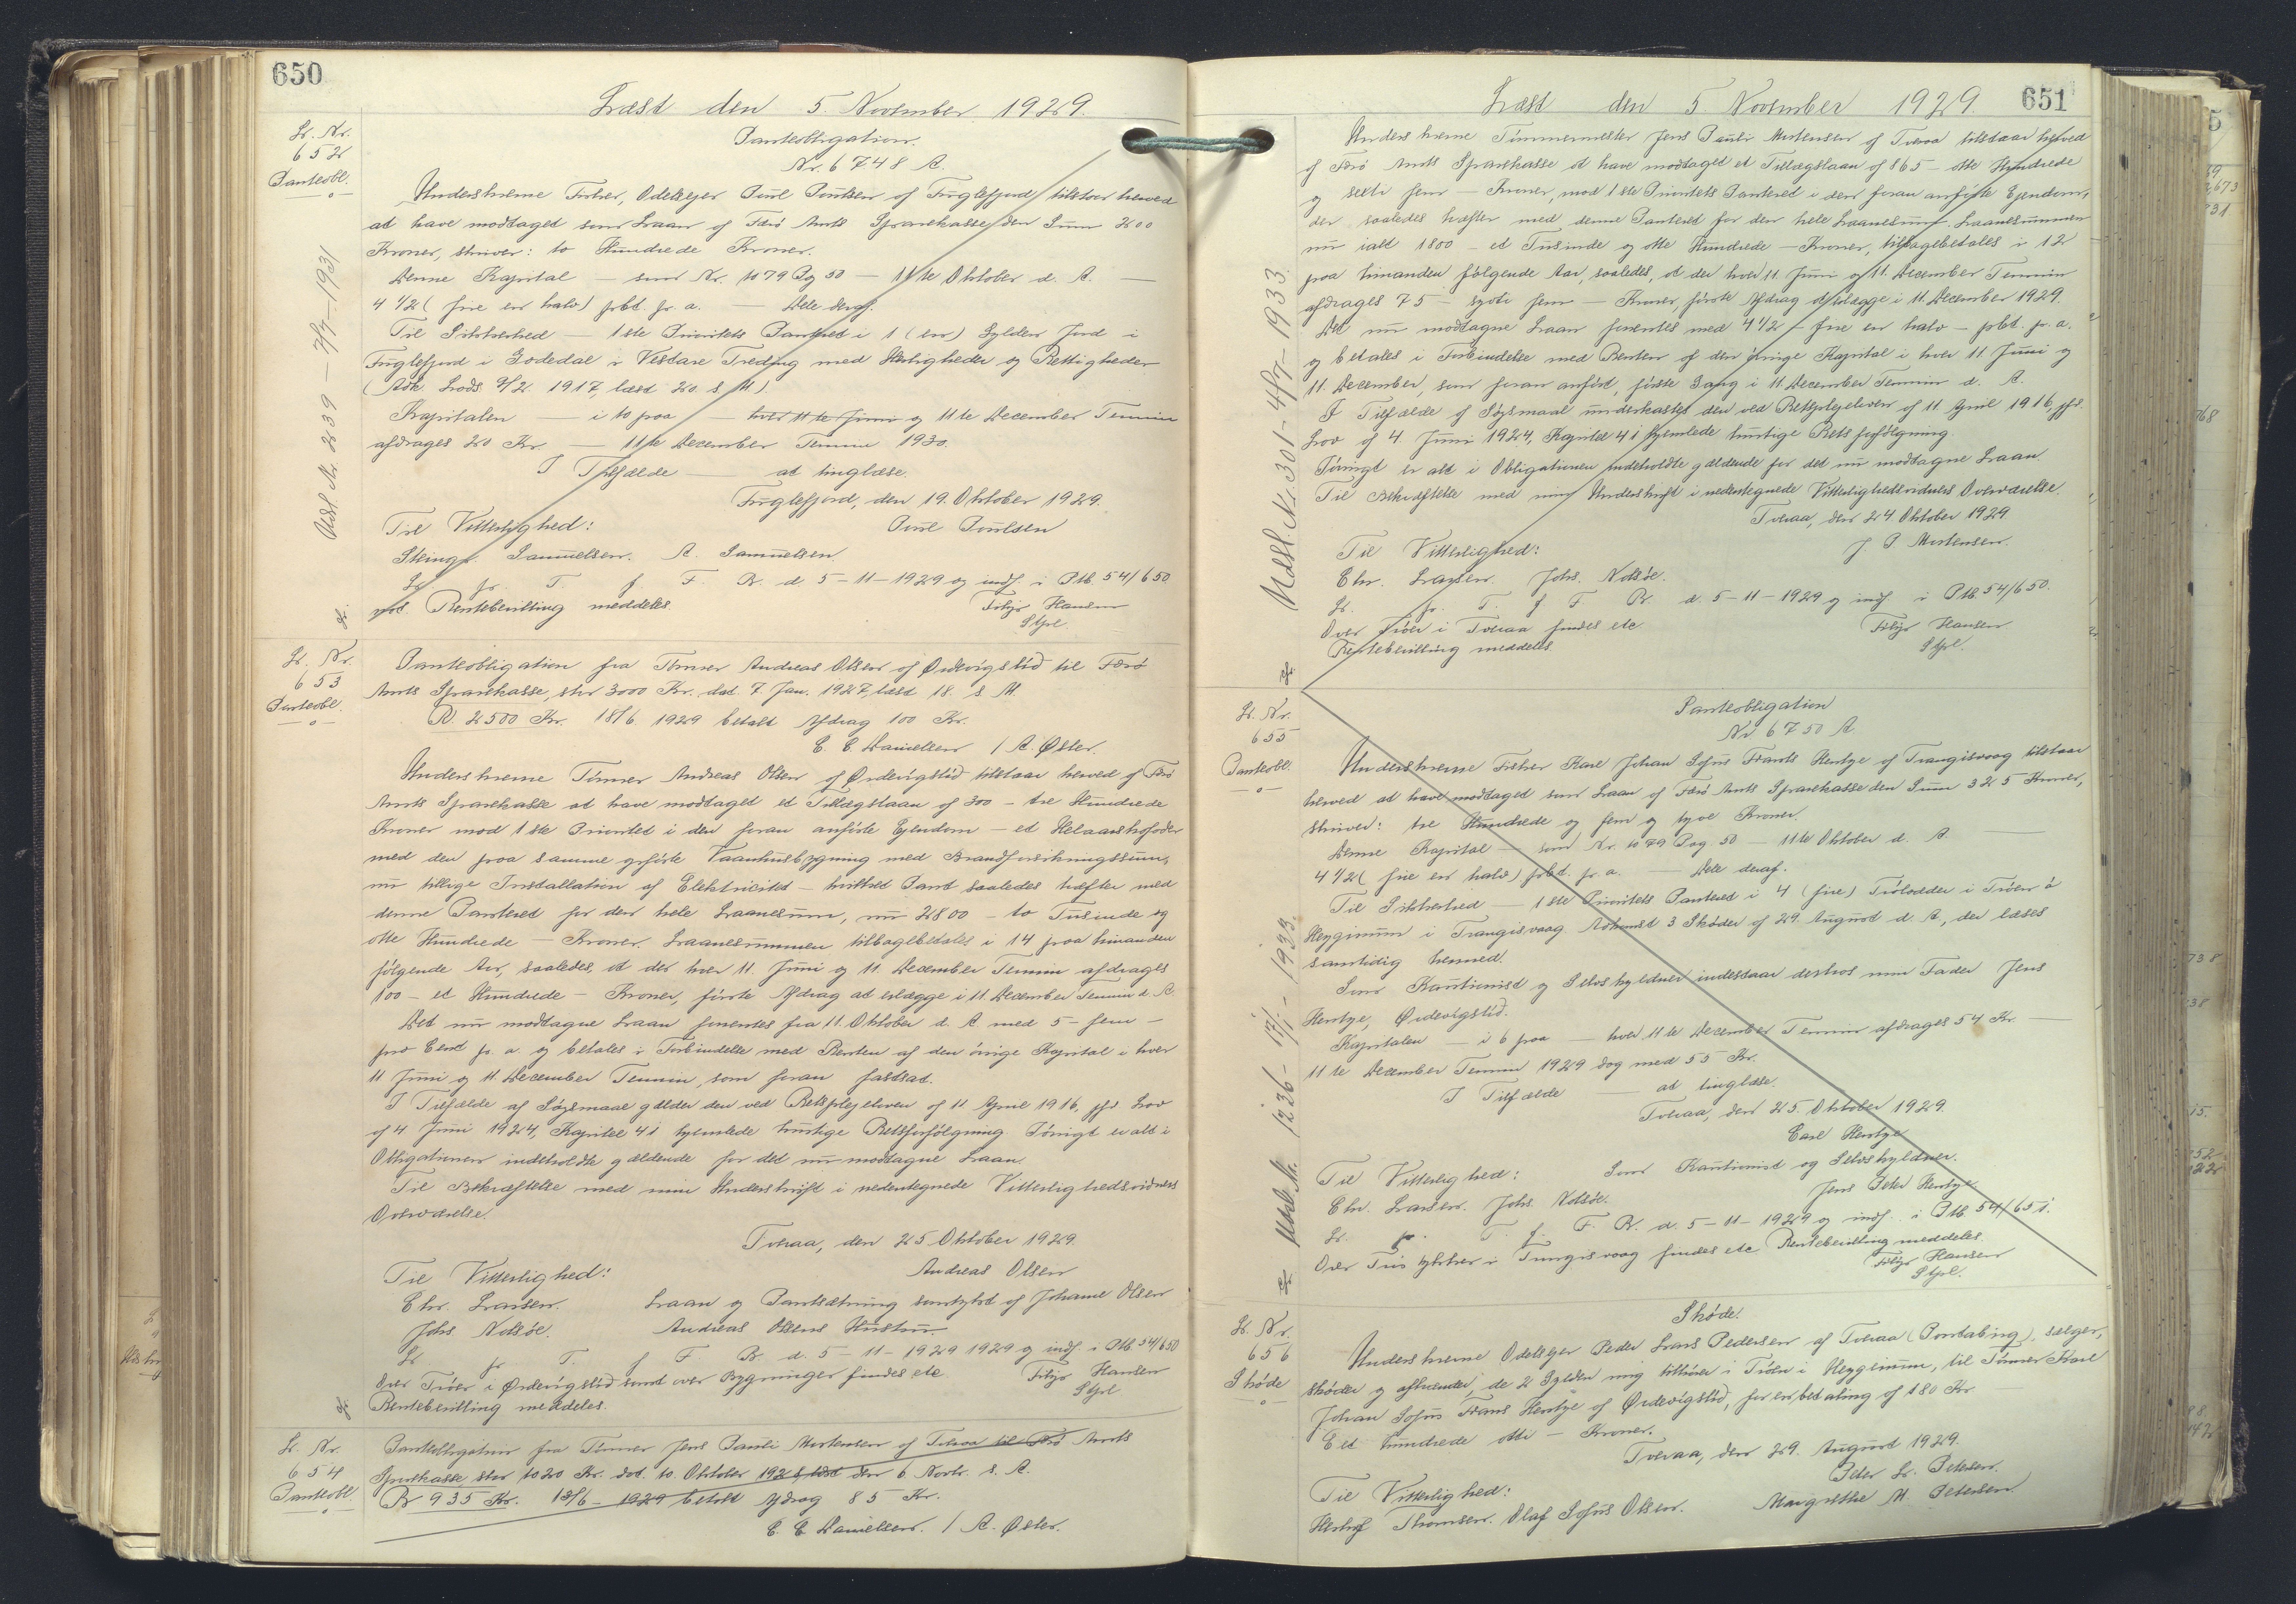 650
Læst den 5. November 1929.
L. Nr.
652
Panteobl.
Panteobligation.
Nr. 6748 A.
Underskrevne Fisker, Odelsejer Poul Poulsen af Fuglefjord tilstaar herved
at have modtaget som Laan af Færø Amts Sparekasse den Sum 200
Kroner, skriver: to Hundrede Kroner.
Denne Kapital — som Nr. 1079 Pag 50 — 11te Oktober d. A. —
4 1/2 (fire en halv) pCt. pr. a. — Dele deraf.
Til Sikkerhed — 1ste Prioritets Panteret i 1 (en) Gylden Jord i
Fuglefjord i Godedal i Vestare Treding med Herligheder og Rettigheder
(Adk. Lods. 9/2 1917, læst 20. s. M.)
Kapitalen — i to paa — hver 11te Juni og 11te December Termin
afdrages 20 Kr. — 11te December Termin 1930.
I Tilfælde — at tinglæse.
Fuglefjord, den 19. Oktober 1929.
Til Vitterlighed: Poul Poulsen
Steingr. Samuelsen. A. Samuelsen.
L. fr. T. f. F. R. d. 5-11-1929 og indf. i Ptb. 54/650
Rentebevilling meddeles.
Hansen
Udsl. Nr. 239 — 7/7 — 1931
L. Nr.
653
Panteobl.
Panteobligation fra Tømrer Andreas Olsen af Ørdevigslid til Færø
Amts Sparekasse, stor 3000 Kr. dat. 7. Jan. 1927, læst 18. s. M.
R. 2500 Kr. 18/6 1929 betalt Afdrag 100 Kr.
E. E. Danielsen / A. Øster.
Underskrevne Tømrer Andreas Olsen af Ørdevigslid tilstaar herved af Færø
Amts Sparekasse at have modtaget et Tillægslaan af 300 — tre Hundrede
Kroner mod 1ste Prioritet i den foran anførte Ejendom — et Helaarshusfoder
med den paa samme opførte Vaanhusbygning med Brandforsikringssum,
nu tillige Installation af Elektricitet — hvilket Pant saaledes hæfter med
denne Panteret for den hele Laanesum, nu 2800 — to Tusinde og
otte Hundrede — Kroner. Laanesummen tilbagebetales i 14 paa hinanden
følgende Aar, saaledes, at der hver 11. Juni og 11. December Termin afdrages
100 — et Hundrede — Kroner, første Afdrag at erlægge i 11. December Termin d. A.
Det nu modtagne Laan forrentes fra 11. Oktober d. A. med 5 — fem —
pro Cent pr. a. og betales i Forbindelse med Renten af den øvrige Kapital i hver
11 Juni og 11. December Termin, som foran fastsat.
I Tilfælde af Søgsmaal gælder den ved Retsplejeloven af 11 April 1916, jfr. Lov
af 4 Juni 1924, Kapitel 41 hjemlede hurtige Retsforfølgning. Iøvrigt er alt i
Obligationen indeholdte gældende for det nu modtagne Laan.
Til Bekræftelse med min Underskrift i nedentegnede Vitterlighedsvidners
Overværelse.
Tveraa, den 25 Oktober 1929.
Til Vitterlighed: Andreas Olsen
Chr. Larsen. Laan og Pantsætning samtykt af Johanne Olsen
Johs. Nolsøe. Andreas Olsens Hustru.
L. fr. T. f. F. R. d. 5-11-1929 1929 og indf. i Ptb. 54/650
Over Trøer i Ørdevigslid samt over Bygninger findes etc.
Hansen
Rentebevilling meddeles.
L. Nr.
654
Panteobl.
Panteobligation fra Tømrer Jens Pauli Mortensen af Tveraa til Færø Amts
Sparekasse stor 1020 Kr. dat. 10. Oktober 1928 læst den 6 Novbr. s. A.
R 935 Kr. 18/6 - 1929 betalt Afdrag 85 Kr.
E. E. Danielsen. / A. Øster.
651
Læst den 5 November 1929.
Underskrevne Tømmermester Jens Pauli Mortensen af Tveraa tilstaar herved
af Færø Amts Sparekasse at have modtaget et Tillægslaan af 865 — otte Hundrede
og seksti fem — Kroner, mod 1ste Prioritets Panteret i den foran anførte Ejendom,
der saaledes hæfter med denne Panteret for den hele Laanesum. Laanesummen
nu ialt 1800 — et Tusinde og otte Hundrede — Kroner, tilbagebetales i 12
paa hinanden følgende Aar, saaledes, at der hver 11. Juni og 11. December Termin
afdrages 75 — syvti fem — Kroner, første Afdrag at erlægge i 11. December 1929.
Det nu modtagne Laan forrentes med 4 1/2 — fire en halv — pCt. pr. a.
og betales i Forbindelse med Renten af den øvrige Kapital i hver 11 Juni og
11. December, som foran anført, første Gang i 11. December Termin d. A.
I Tilfælde af Søgsmaal underkastes den ved Retsplejeloven af 11 April 1916, jfr.
Lov af 4. Juni 1924, Kapitel 41 hjemlede hurtige Retsforfølgning.
Iøvrigt er alt i Obligationen indeholdte gældende for det nu modtagne Laan.
Til Bekræftelse med min Underskrift i nedentegnede Vitterlighedsvidners Overværelse.
Tveraa, den 24. Oktober 1929
Til Vitterlighed: J P. Mortensen.
Chr. Larsen. Johs. Nolsøe.
L. fr. T. f. F. R. d. 5-11-1929 og indf. i Ptb. 54/650.
Over Trøer i Tveraa findes etc.
Hansen
Rentebevilling meddeles.
Udsl. Nr. 301 - 4/7 - 1933.
L. Nr.
655
Panteobl.
Panteobligation
Nr 6750 A
Underskrevne Fisker Karl Johan Sofus Frants Hentze af Trangisvaag tilstaar
herved at have modtaget som Laan af Færø Amts Sparekasse den Sum 325 Kroner,
skriver: tre Hundrede og fem og tyve Kroner.
Denne Kapital — som Nr. 1079 Pag. 50 — 11te Oktober d. A —
4 1/2 (fire en halv) pCt. pr. a. — Dele deraf.
Til Sikkerhed — 1ste Prioritets Panteret i 4 (fire) Trølodder i Trøen á
Heyginum i Trangisvaag Adkomst 3 Skøder af 29. August d. A., der læses
samtidig hermed.
Som Kautionist og Selvskyldner indestaar desforuden min Fader Jens
Hentze, Ørdevigslid.
Kapitalen — i 6 paa — hver 11te December Termin afdrages 54 Kr. —
11te December Termin 1929 dog med 55 Kr.
I Tilfælde — at tinglæse.
Tveraa, den 25. Oktober 1929.
Carl Hentze
Til Vitterlighed: Som Kautionist og Selvskyldner.
Chr. Larsen. Johs. Nolsøe. Jens Peter Hentze
L. fr. T. f. F. R. d. 5-11-1929 og indf. i Ptb. 54/651.
Over Trøstykker i Trangisvaag findes etc. Rentebevilling meddeles.
Hansen
Udsl. Nr. 1236 - 17/1 - 1933.
L. Nr.
656
Skøde
Skøde.
Underskrevne Odelsejer Peder Lars Pedersen af Tveraa (Pontabing), sælger,
skøder og afhænder, de 2 Gylden mig tilhører i Trøen i Heyginum, til Tømrer Karl
Johan Sofus Frans Hentze af Ørdevigslid, for en betaling af 180 Kr.
Eet hundrede otti — Kroner.
Tveraa, den 29. August 1929.
Til Vitterlighed: Peter L. Petersen.
Thomsen. Olaf Sofus Olsen. Margrethe M. Petersen